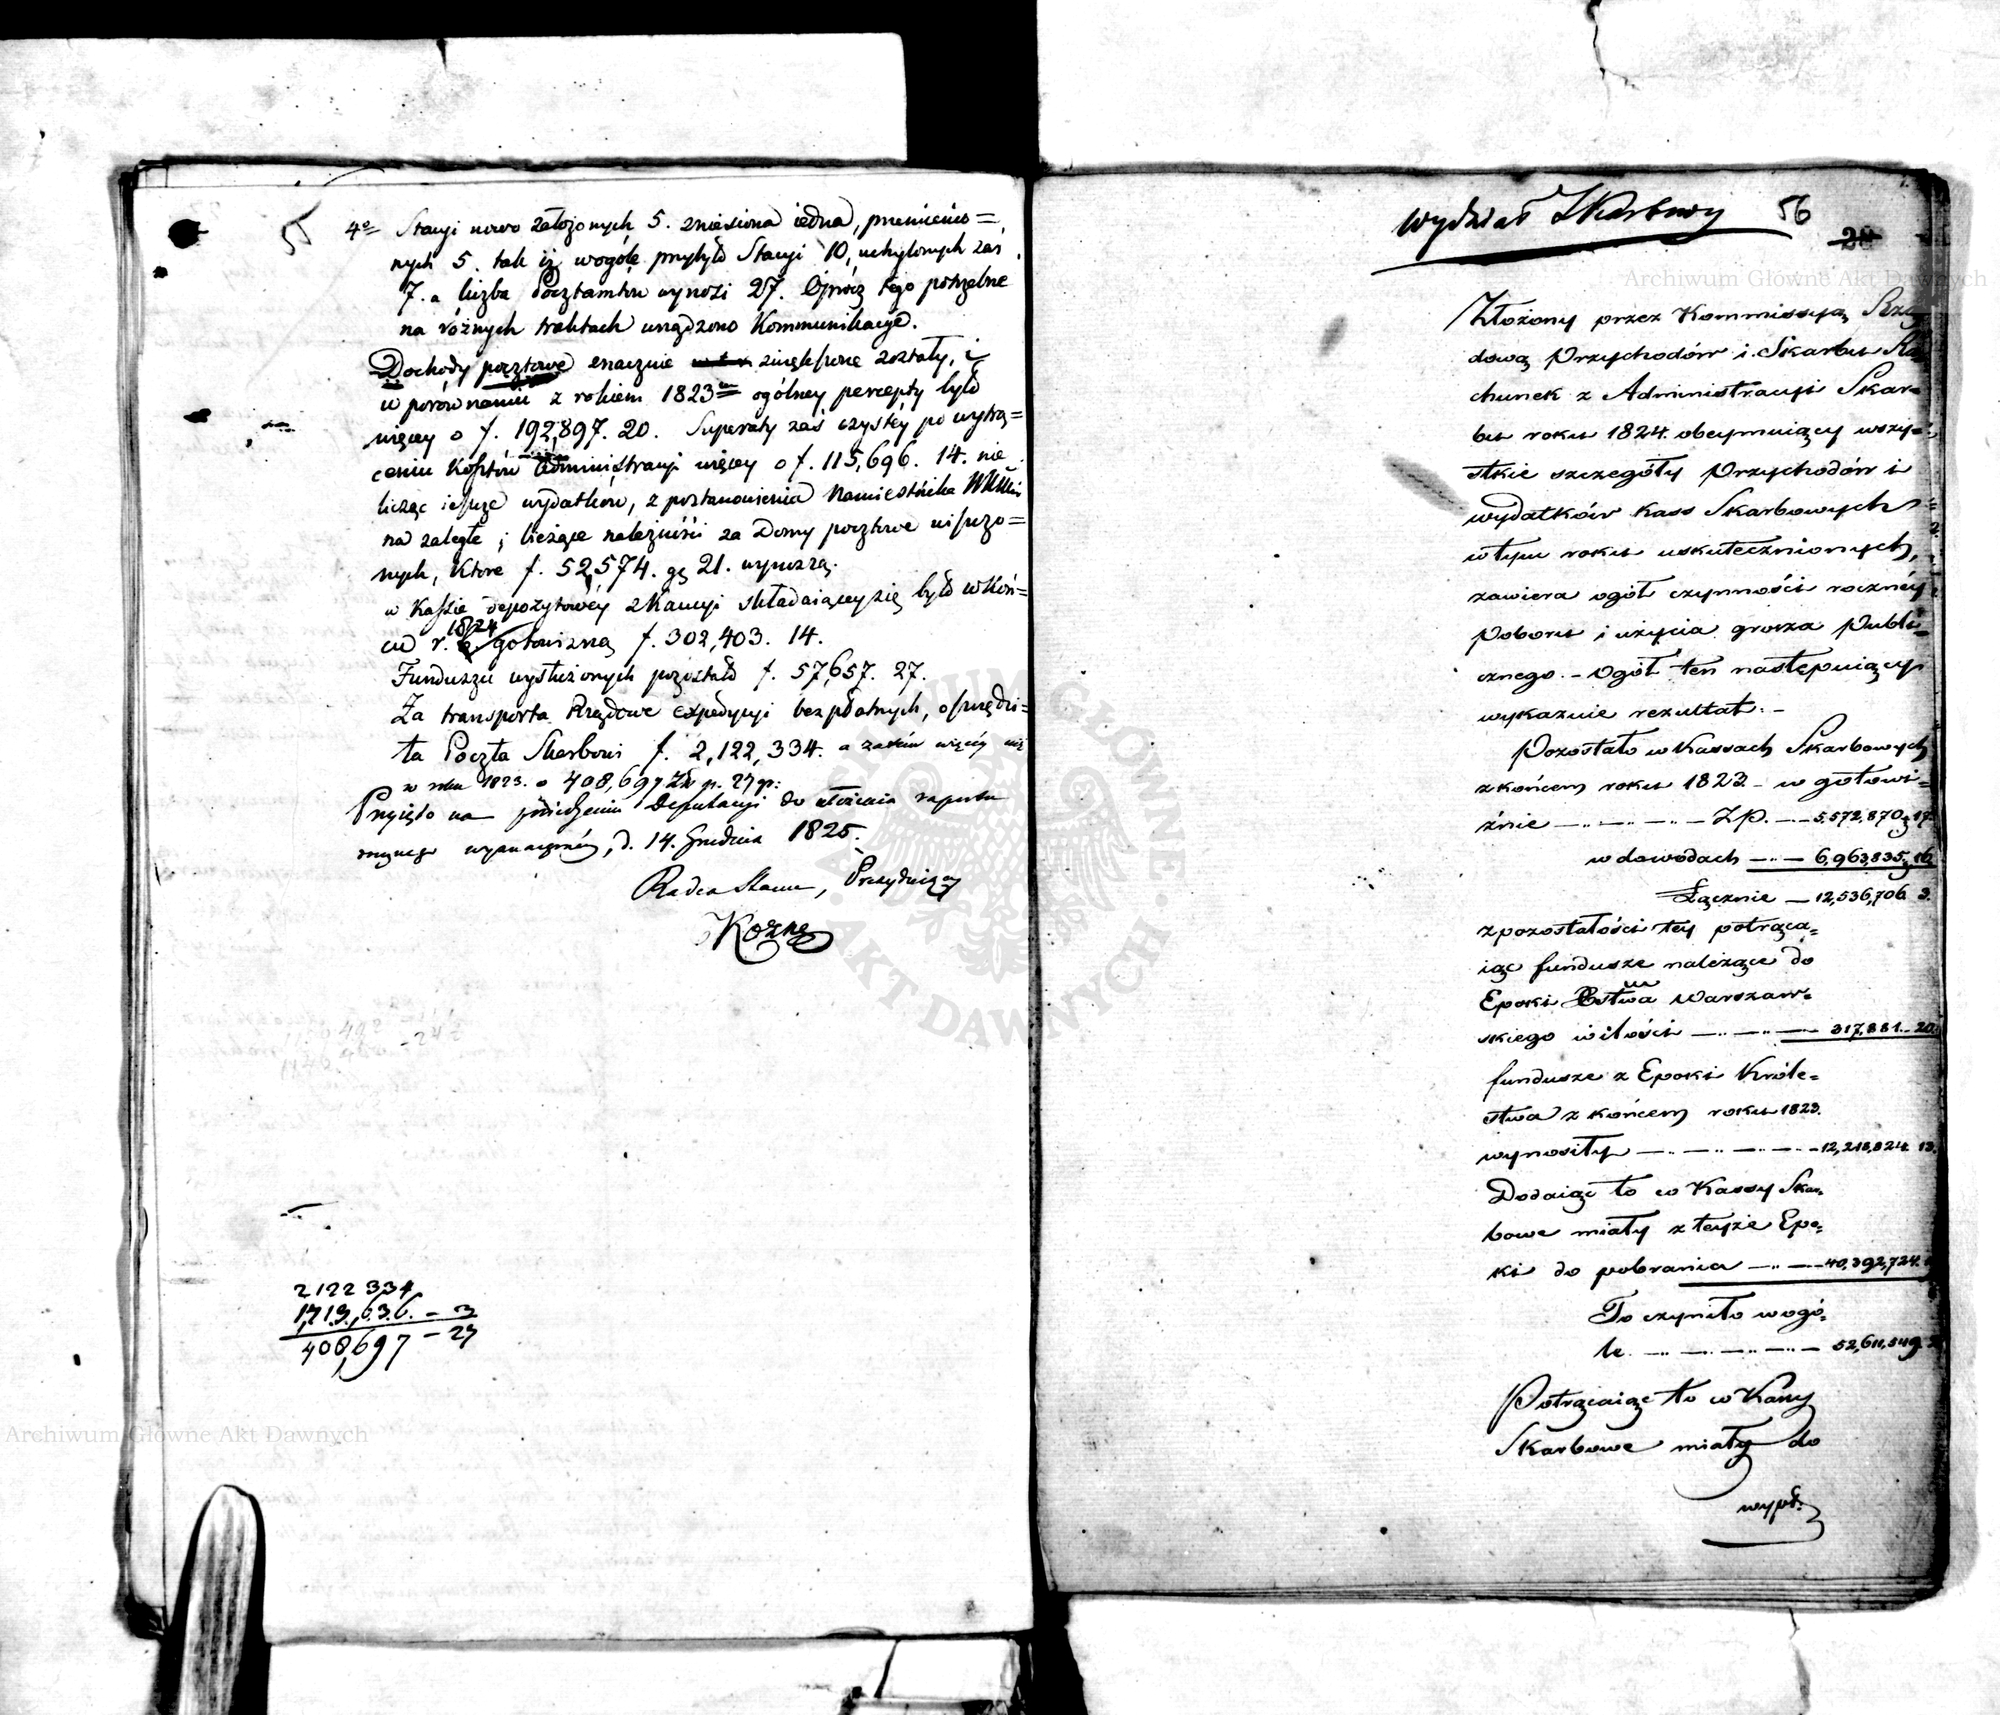 55
4o Stacyi nowo założonych 5. zniesiona iedna, przeniesio=
nych 5. tak iż wogóle przybyło Stacyi 10, uchylonych zaś
7. a liczba Pocztamtów wynosi 27. Oprócz tego potrzebne
na różnych traktach urządzono Kommunikacye.
Dochody pocztowe znacznie zwiększone zostały, i
w porównaniu z rokiem 1823m ogólney percepty było
więcey o f. 192,897. 20. Superaty zaś czystéy po wytrą=
ceniu kosztów Administracyi więcey o f. 115,696. 14. nie
licząc ieszcze wydatków, z postanowienia Namiestnika
na zaległe i bieżące należności za Domy pocztowe uiszczo=
nych, które f. 52,574. gr 21. wynoszą.
w Kassie depozytowéy z Kaucyi składaiącey się było w Koń=
cu r. 1824 gotowizną f. 302,403. 14.
Funduszu wysłużonych pozostało f. 57,657. 27.
Za transporta Rządowe expedycyi bezpłatnych, oszczędzi=
ła Poczta Skarbowi f. 2,122,334. a zatém więcéy niż
w roku 1823. o 408,697 Zł. p. 27 gr:
Przyięto na posiedzeniu Deputacyi do ułożenia raportu
wyznaczonéy, d. 14. Grudnia 1825.
Radca Stanu, Prezyduiący
Koźmę
2122 334
1,713,636. - 3
408,697 - 27
Wydział Skarbowy 56
24
Złożony przez Kommissyą Rzą
dową Przychodów i Skarbu Ra
chunek z Administracyi Skar=
bu roku 1824. obeymuiący wszy=
stkie szczegóły Przychodów i
wydatków Kass Skarbowych
w tym roku uskutecznionych,
zawiera ogół czynności roczney
Poboru i użycia grosza Publi=
cznego. - Ogół ten następuiący
wykazuie rezultat. -
Pozostało w Kassach Skarbowych
z końcem roku 1823. - w gotowi=
źnie Zp. 5,572,870 g 17
w dowodach 6,963,835. 16
Łącznie 12,536,706 3.
z pozostałości tey potrąca=
iąc fundusze należące do
Epoki Xstwa Warszaw=
skiego w ilości 317,881. 20.
fundusze z Epoki Króle=
stwa z końcem roku 1823.
wynosiły 12,218,824. 13.
Dodaiąc to co Kassy Skar=
bowe miały z teyże Epo=
ki do pobrania 40,392,724.
To czyniło wogó=
le 52,611,549
Potrącaiąc to co Kassy
Skarbowe miały do
wypł.
Archiwum Główne Akt Dawnych
Archiwum Główne Akt Dawnych
ARCHIWUM GŁÓWNE
AKT DAWNYCH